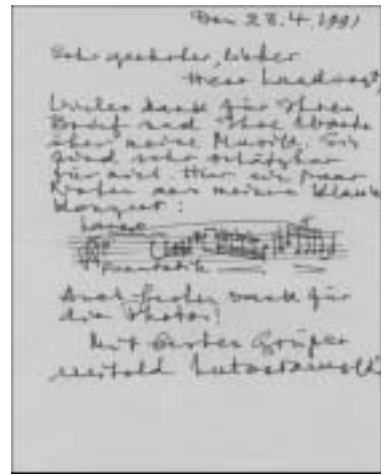 Den 28.4.1991
Sehr geehrter, lieber
Herr
vielen Dank für Ihren
Brief und Ihre Worte
über meine Musik. Sie
sind sehr schätzbar
für mich. Hier ein paar
aus meinem Klavier
konzert:
Largo
Auch besten Dank für
die Photos!
Mit besten Grüßen
Witold Lutosławski